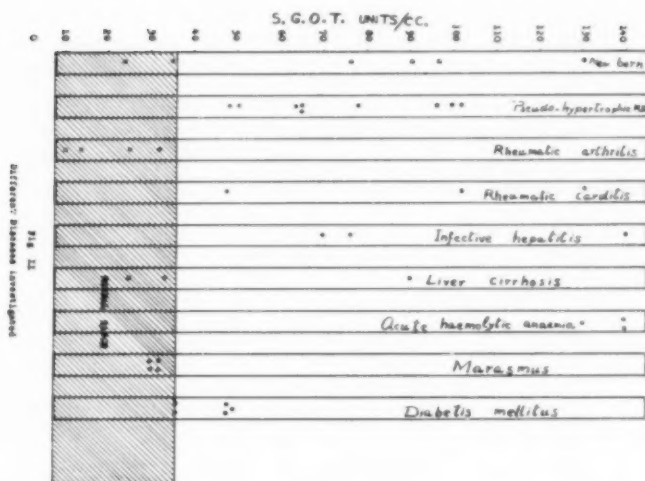 S. G. O. T. UNITS/CC.
0 10 20 30 40 50 60 70 80 90 100 110 120 130 140
New born
Pseudo-hypertrophic
Rheumatic arthritis
Rheumatic carditis
Infective hepatitis
Liver cirrhosis
Acute haemolytic anaemia
Marasmus
Diabetis mellitus
Fig II
Different Disease investigated